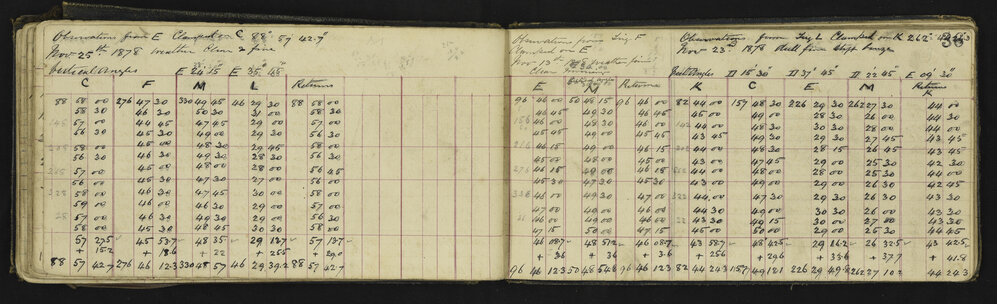 Observations from E Clamped on C 88° 57' 42.7"
Nov 25th 1878 weather clear & fine
Vertical Angles E 24' 15 E 35' 45"
C F M L Returns
88 58 00 276 47 30 330 49 45 46 29 30 88 58 00
58 30 46 30 50 30 31 00 58 30
57 00 44 45 47 45 29 00 57 00
56 30 45 30 49 00 29 30 56 30
58 00 45 00 48 30 29 45 58 00
56 30 46 30 49 30 28 30 56 30
57 00 45 00 48 00 28 00 56 45
56 00 45 30 47 30 27 00 56 00
58 00 46 30 47 45 30 00 58 00
59 00 46 00 49 30 30 00 57 00
57 00 46 30 49 30 29 00 56 30
58 00 45 30 48 30 30 00 58 00
57 27.5 45 53.7 48 35 29 13.7 57 13.7
+ 15.2 + 18.6 + 22 + 25.5 + 29.0
88 57 42.7 276 46 12.3 330 48 57 46 29 39.2 88 57 42.7
Observations from Trig E
Clamped on E
Nov 13th 1878 weather fine
Clear morning
E M Returns
96 46 00 50 48 15 96 46 00
46 45 49 30 46 45
46 00 49 00 46 00
45 45 49 30 45 45
46 15 49 00 46 15
45 00 49 00 45 00
46 15 49 00 46 15
45 30 47 30 45 30
46 00 48 00 46 00
47 00 49 00 47 00
46 00 49 30 46 00
47 15 50 00 47 15
46 08.7 48 51.2 46 08.7
+ 3.6 + 3.6 + 3.6
96 46 12.3 50 48 54.8 96 46 12.3
36
Observations from Trig L Clamped on K 262°
Nov 23rd 1878 dull fine slight haze
Vert Angles D 15' 30 D 37' 45" D 22' 45 E 09' 30"
K C E M Returns
K
82 44 00 157 48 30 226 29 30 262 27 30 44 00
45 00 49 00 28 30 26 30 44 30
44 00 48 30 30 30 28 00 44 00
43 45 49 30 29 30 27 45 43 45
44 00 48 30 28 15 26 45 43 45
43 00 47 45 29 00 25 30 42 30
44 00 49 00 29 00 26 00 44 00
43 00 49 00 29 00 26 30 42 45
44 00 48 00 28 00 25 30 43 00
44 30 48 00 29 00 26 30 43 30
43 30 49 15 30 00 27 00 43 30
45 00 50 00 30 00 26 30 44 30
43 58.7 48 42.5 29 16.2 26 32.5 43 42.5
+ 25.6 + 29.6 + 33.6 + 37.7 + 41.8
82 44 24.3 157 49 12.1 226 29 49.8 262 27 10.2 44 24.3